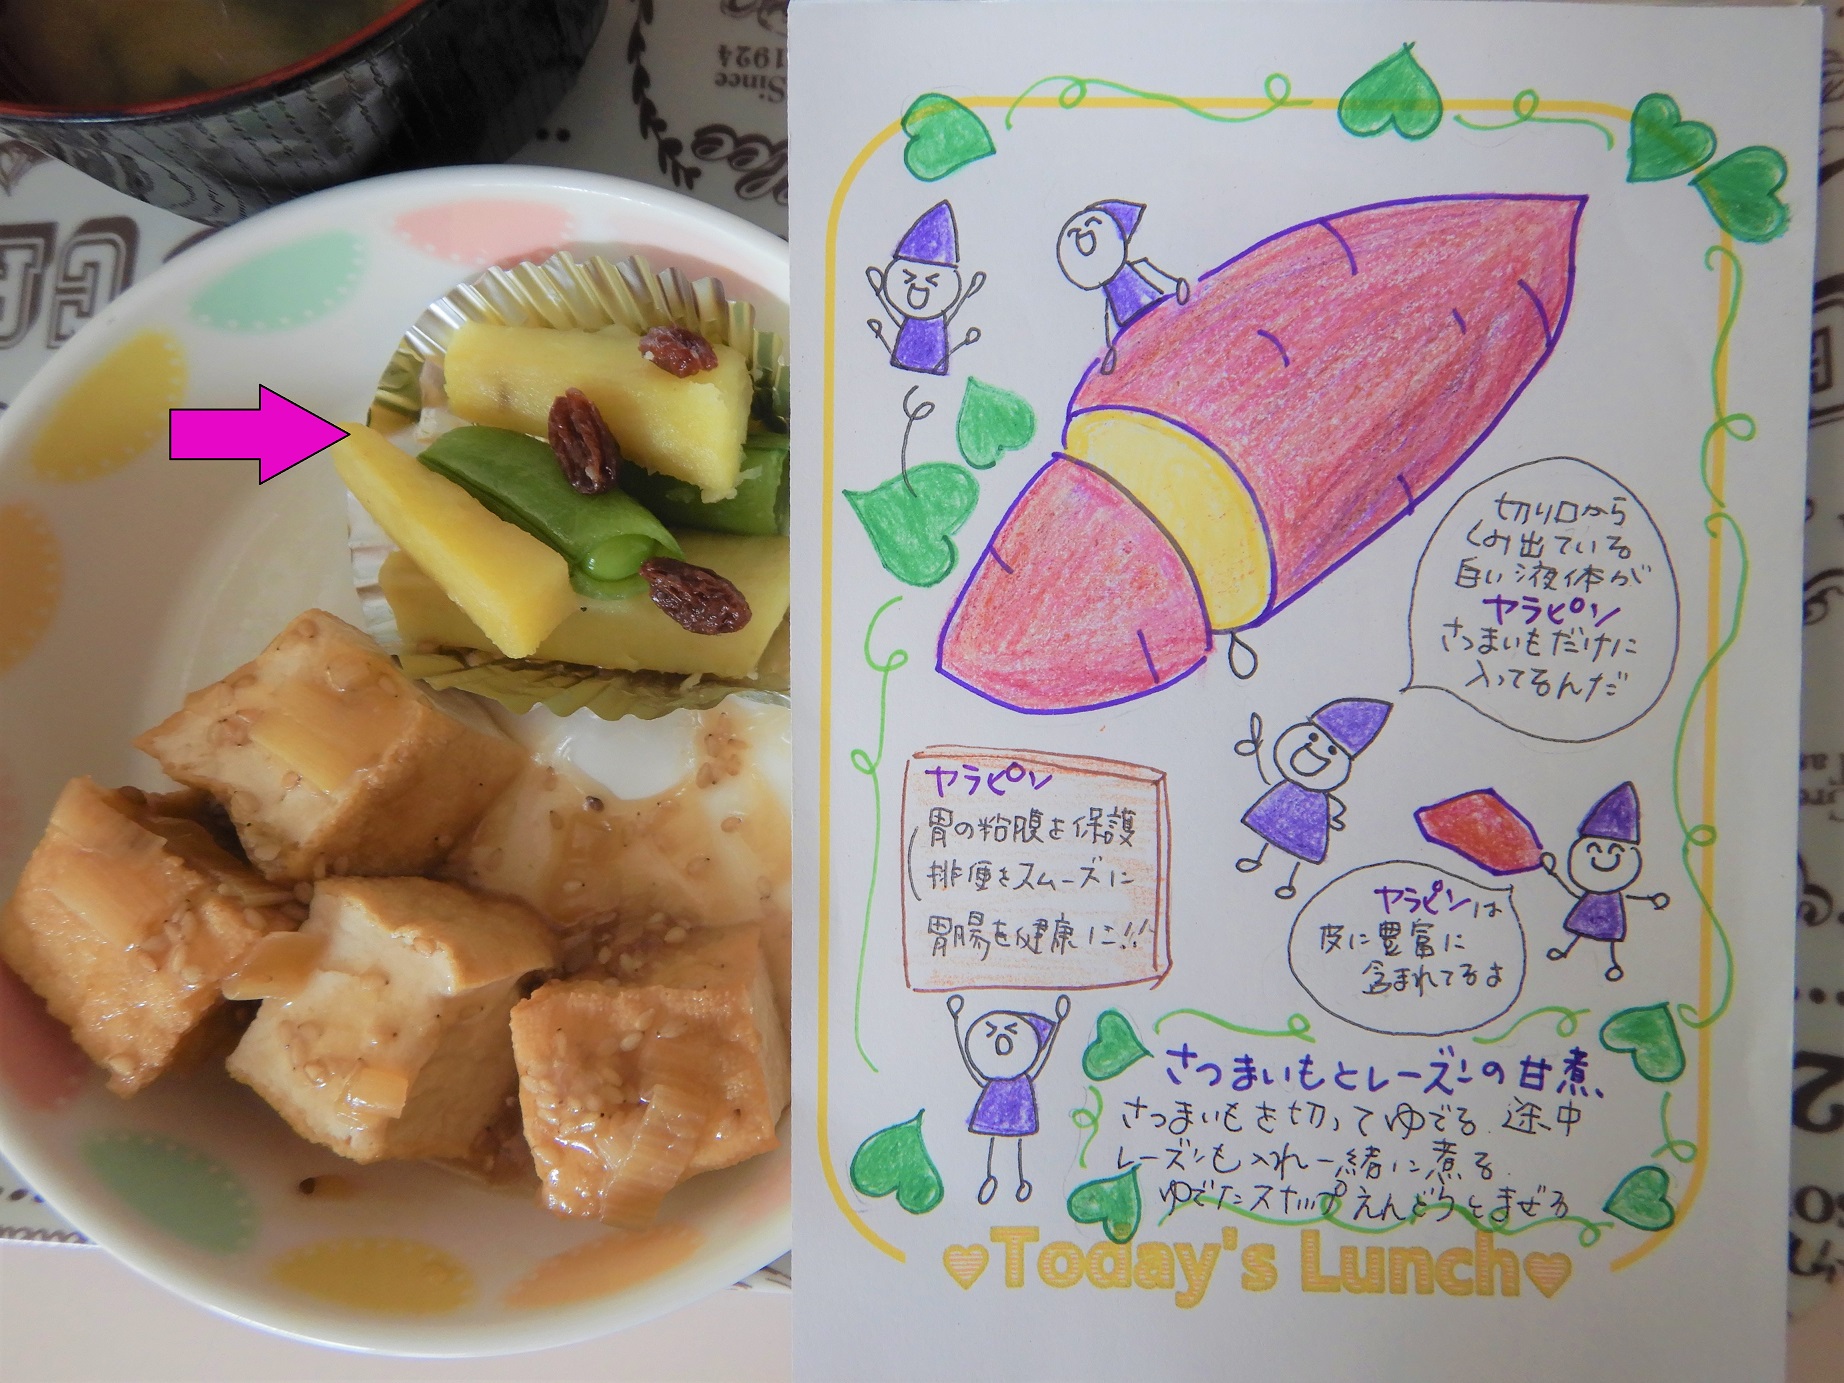 Since
1924
切り口から
くみ出ている
白い液体が
ヤラピン
さつまいもだけに
入ってるんだ
ヤラピン
胃の粘膜を保護
排便をスムーズに
胃腸を健康に!!
ヤラピンは
皮に豊富に
含まれてるよ
さつまいもとレーズンの甘煮、
さつまいもを切ってゆでる 途中
レーズンも入れ一緒に煮る
ゆでたスナップえんどうとまぜる
♥Today's Lunch♥